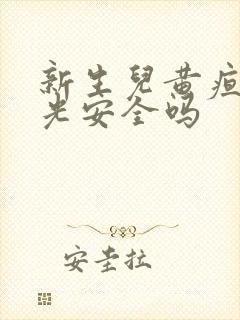 新生兒黄疸
光安全吗
安圭拉